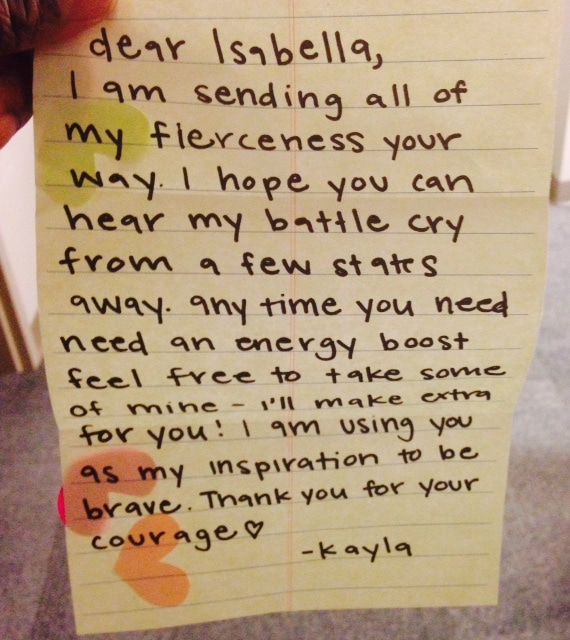 dear Isabella,
I am sending all of
my fierceness your
way. I hope you can
hear my battle cry
from a few states
away. any time you need
need an energy boost
feel free to take some
of mine - i'll make extra
for you! I am using you
as my inspiration to be
brave. Thank you for your
courage♡
-kayla